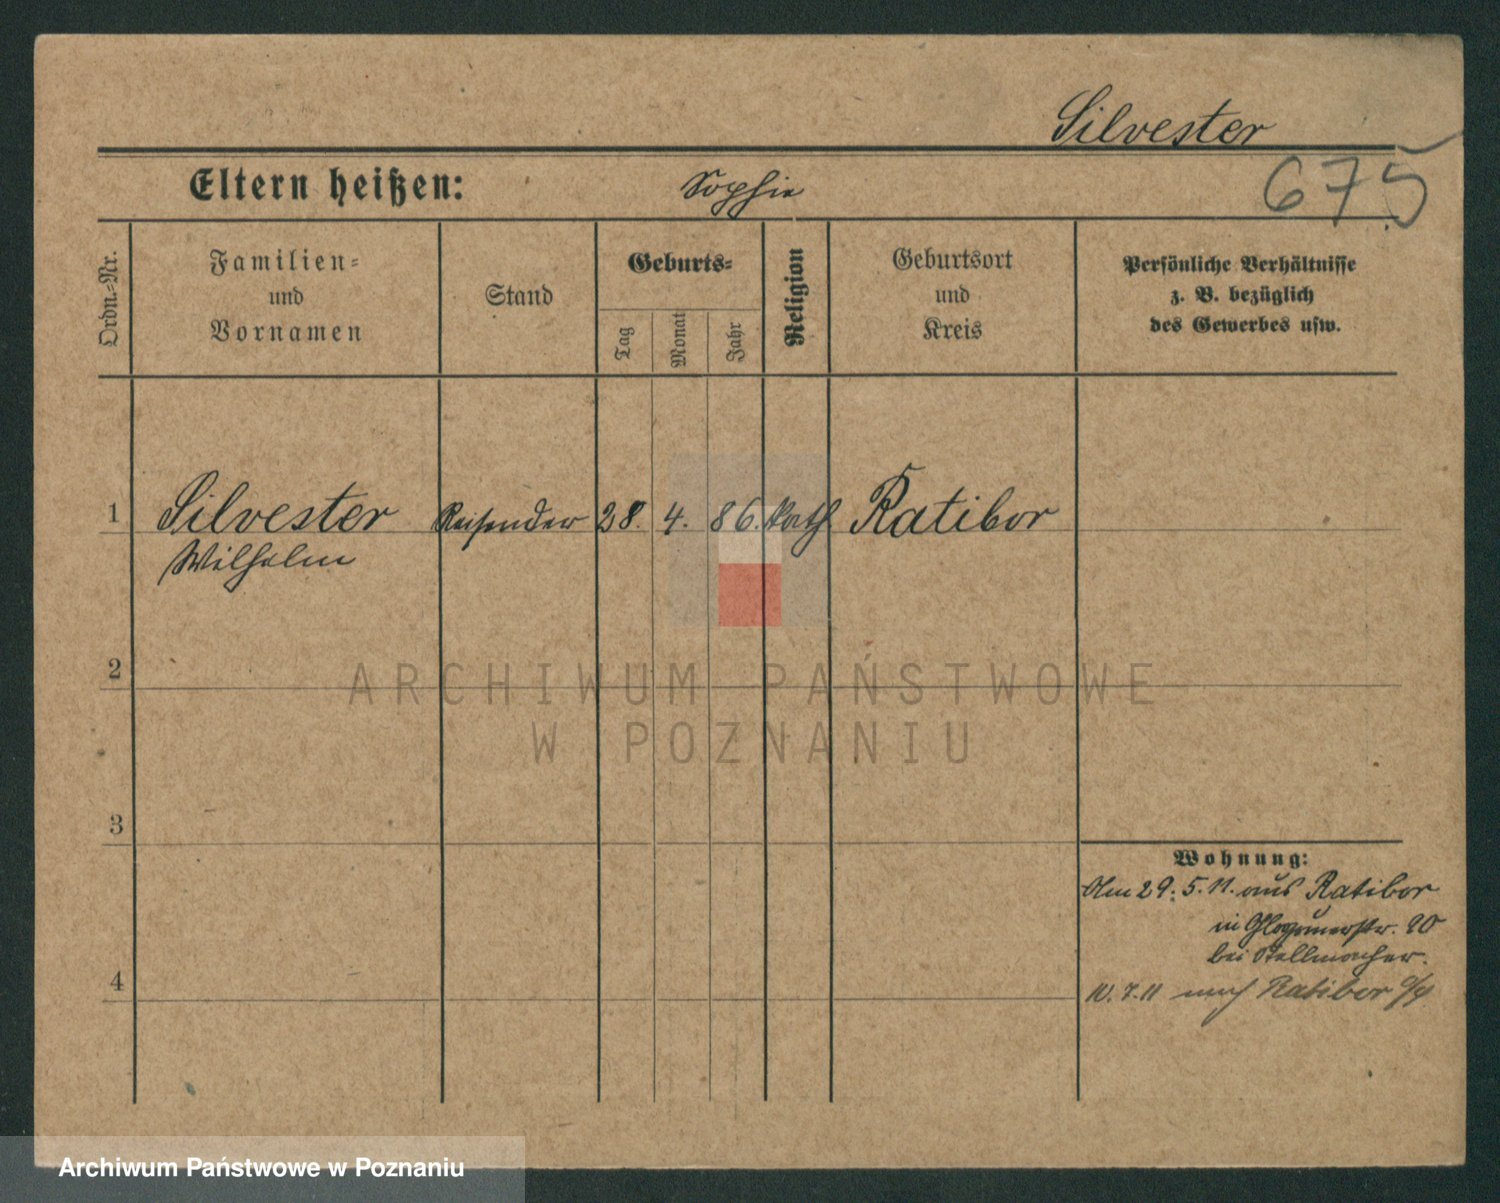 Silvester
Eltern heißen: Sophie
675
Ordn.-Nr.
Familien-
und
Vornamen
Stand
Geburts-
Tag
Monat
Jahr
Religion
Geburtsort
und
Kreis
Persönliche Verhältnisse
z. B. bezüglich
des Gewerbes usw.
1 Silvester Reisender 28. 4. 86. kath Ratibor
Wilhelm
2
ARCHIWUM PAŃSTWOWE
W POZNANIU
3
Wohnung:
Am 29. 5. 11. aus Ratibor
in Glogauerstr. 90
bei Stellmacher.
4
10. 7. 11 nach Ratibor
Archiwum Państwowe w Poznaniu